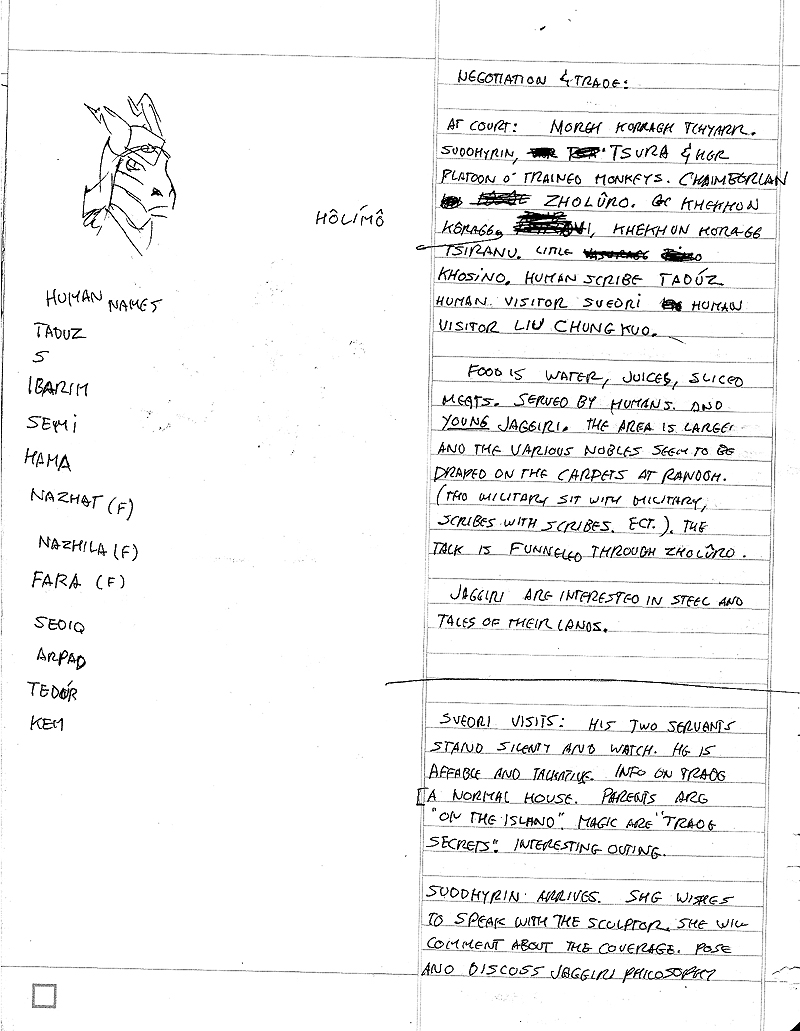 HÔLÍMÔ
HUMAN NAMES
TADUZ
S
IBARIM
SEMI
HAMA
NAZHAT (F)
NAZHILA (F)
FARA (F)
SEDIQ
ARPAD
TEDÓR
KEM
NEGOTIATION & TRADE:
AT COURT: MORGH KORRAGH TCHYARR.
SUODHYRIN, TSURA & HER
PLATOON O' TRAINED MONKEYS. CHAIMBORLAN
ZHOLÛRO. KHEKHON
KORAGG, KHEKHUN KORAGG
TSIRANU. LITTLE
KHOSINO. HUMAN SCRIBE TADÚZ
HUMAN VISITOR SVEDRI HUMAN
VISITOR LIU CHUNG KUO.
FOOD IS WATER, JUICES, SLICED
MEATS. SERVED BY HUMANS. AND
YOUNG JAGGIRI. THE AREA IS LARGE
AND THE VARIOUS NOBLES SEEM TO BE
DRAPED ON THE CARPETS AT RANDOM.
(THO MILITARY SIT WITH MILITARY,
SCRIBES WITH SCRIBES. ECT.). THE
TALK IS FUNNELED THROUGH ZHOLÛRO.
JAGGIRI ARE INTERESTED IN STEEL AND
TALES OF THEIR LANDS.
SVEDRI VISITS: HIS TWO SERVANTS
STAND SILENTY AND WATCH. HE IS
AFFABLE AND TALKATIVE. INFO ON TRADE
[A NORMAL HOUSE. PARENTS ARE
"ON THE ISLAND". MAGIC ARE "TRADE
SECRETS". INTERESTING OUTING.
SUODHYRIN ARRIVES. SHE WISHES
TO SPEAK WITH THE SCULPTOR. SHE WILL
COMMENT ABOUT THE COVERAGE. POSE
AND DISCUSS JAGGIRI PHILOSOPHY